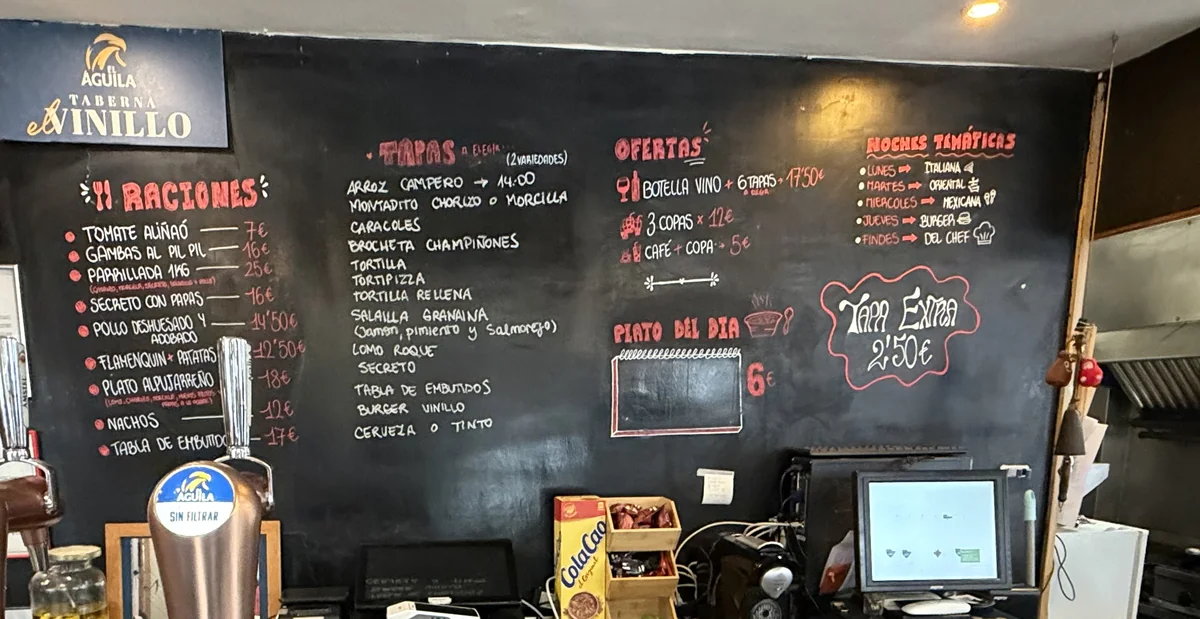 EL
AGUILA
TABERNA
el VINILLO
RACIONES
TOMATE ALIÑAÓ 7€
GAMBAS AL PIL PIL 16€
PARRILLADA 1KG 25€
SECRETO CON PAPAS 16€
POLLO DESHUESADO Y 14'50€
ADOBADO
FLAMENQUIN + PATATAS 12'50€
PLATO ALPUJARREÑO 18€
NACHOS 12€
TABLA DE EMBUTIDO 17€
TAPAS A ELEGIR
(2 VARIEDADES)
ARROZ CAMPERO → 14:00
MONTADITO CHORIZO O MORCILLA
CARACOLES
BROCHETA CHAMPIÑONES
TORTILLA
TORTIPIZZA
TORTILLA RELLENA
SALAILLA GRANAINA
(Jamón, pimiento y Salmorejo)
LOMO ROQUE
SECRETO
TABLA DE EMBUTIDOS
BURGER VINILLO
CERVEZA O TINTO
OFERTAS
BOTELLA VINO + 6 TAPAS → 17'50€
A ELEGIR
3 COPAS x 12€
CAFÉ + COPA → 5€
PLATO DEL DIA
6€
NOCHES TEMÁTICAS
LUNES ⇒ ITALIANA
MARTES ⇒ ORIENTAL
MIERCOLES ⇒ MEXICANA
JUEVES ⇒ BURGER
FINDES ⇒ DEL CHEF
TAPA EXTRA
2'50€
EL
AGUILA
SIN FILTRAR
ColaCao